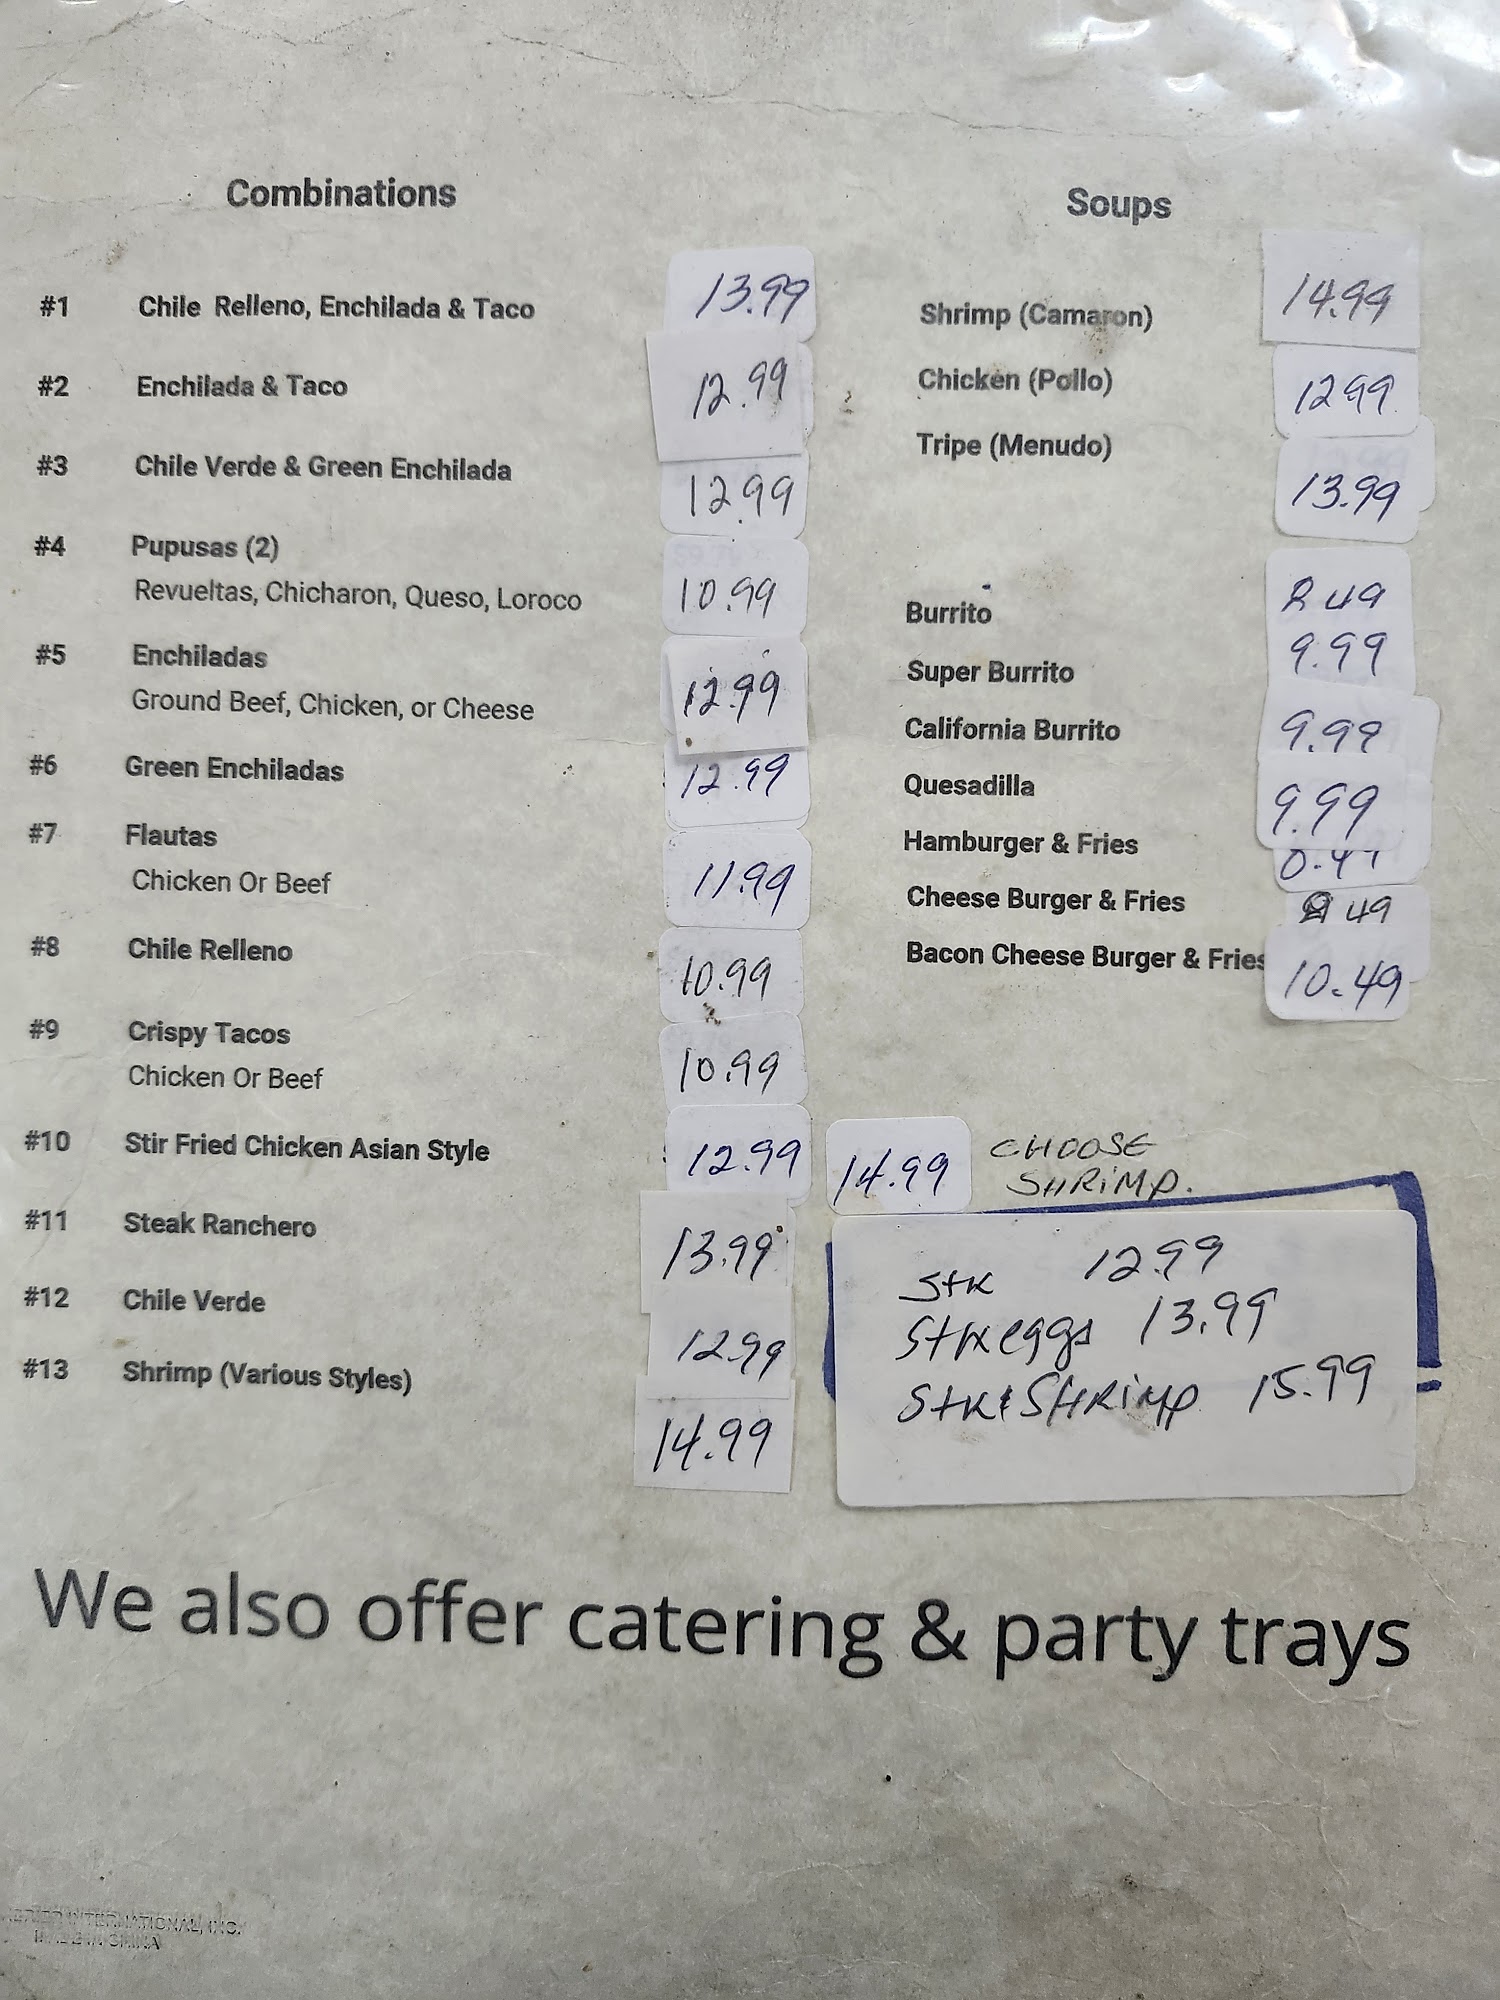 Combinations
#1 Chile Relleno, Enchilada & Taco 13.99
#2 Enchilada & Taco 12.99
#3 Chile Verde & Green Enchilada 12.99
#4 Pupusas (2)
Revueltas, Chicharon, Queso, Loroco 10.99
#5 Enchiladas
Ground Beef, Chicken, or Cheese 12.99
#6 Green Enchiladas 12.99
#7 Flautas
Chicken Or Beef 11.99
#8 Chile Relleno 10.99
#9 Crispy Tacos
Chicken Or Beef 10.99
#10 Stir Fried Chicken Asian Style 12.99 14.99 CHOOSE
SHRIMP.
#11 Steak Ranchero 13.99
#12 Chile Verde 12.99
#13 Shrimp (Various Styles) 14.99
Soups
Shrimp (Camaron) 14.99
Chicken (Pollo) 12 99
Tripe (Menudo) 13.99
Burrito 8 49
Super Burrito 9.99
California Burrito 9.99
Quesadilla 9.99
Hamburger & Fries
Cheese Burger & Fries 9 49
Bacon Cheese Burger & Fries 10.49
Stk 12.99
Stk eggs 13.99
Stk & SHRIMP 15.99
We also offer catering & party trays
INTERNATIONAL, INC.
MADE IN CHINA